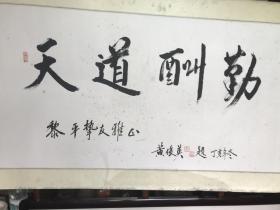 天道酬勤
黎平挚友雅正
黄俊英 题 丁亥冬